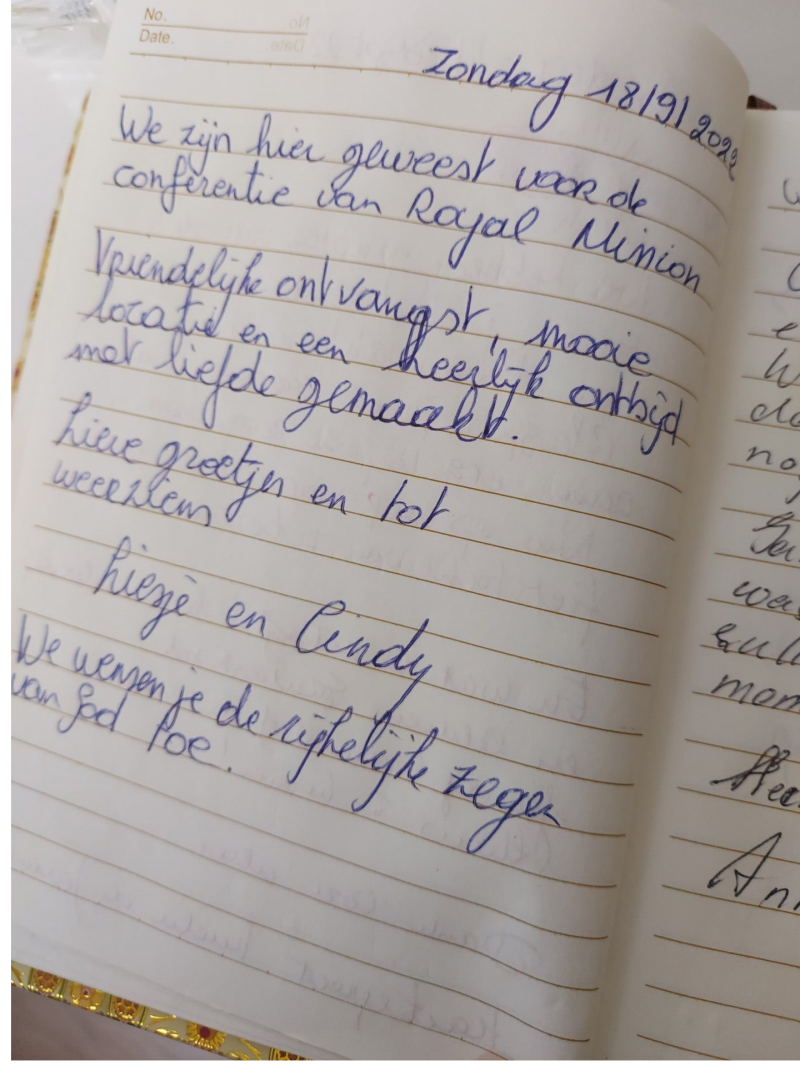 No.
Date.
Zondag 18/9/2022
We zijn hier geweest voor de
conferentie van Royal Mission
Vriendelijke ontvangst, mooie
locatie en een heerlijk ontbijd
met liefde gemaakt.
Lieve groetjes en tot
weerziens
Liesje en Cindy
We wensen je de rijkelijke zegen
van God toe.